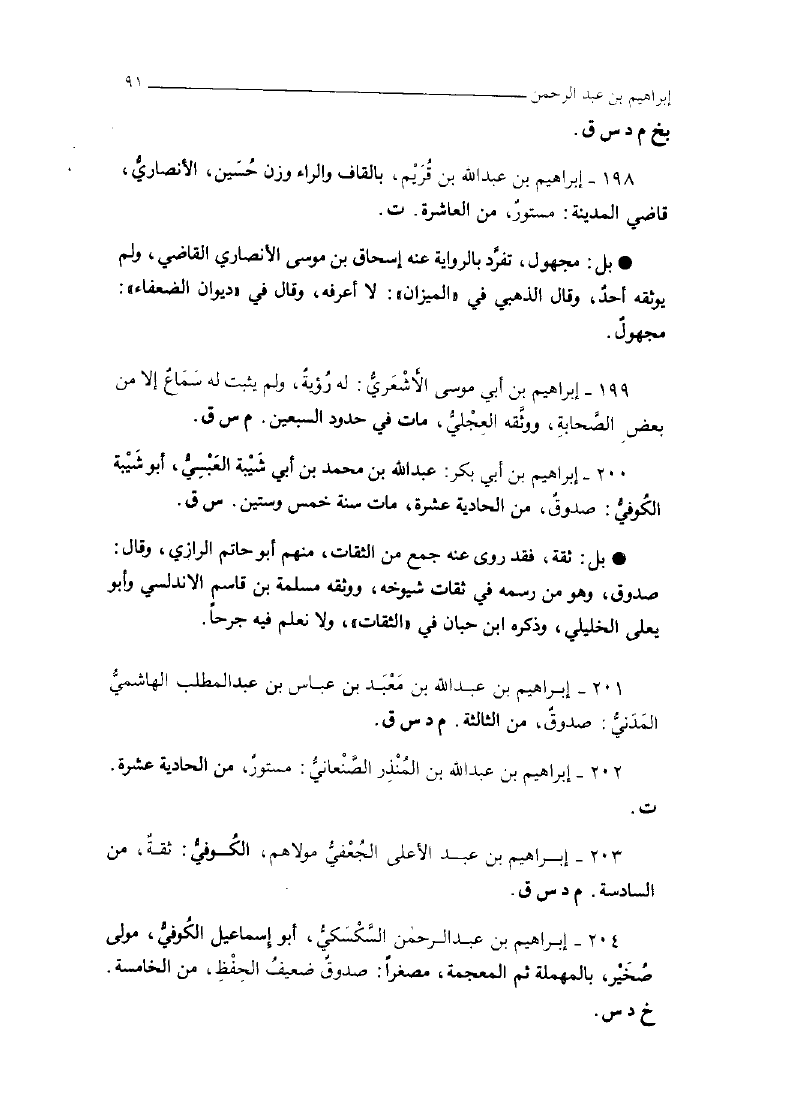 إبراهيم بن عبد الرحمن ـــــــــــــــ ٩١
بخ م د س ق.
١٩٨ ـ إبراهيم بن عبدالله بن قُرَيْم، بالقاف والراء وزن حُسَين، الأنصاريُّ،
قاضي المدينة: مستورٌ، من العاشرة. ت.
● بل: مجهول، تفرَّد بالرواية عنه إسحاق بن موسى الأنصاري القاضي، ولم
يوثقه أحدٌ، وقال الذهبي في «الميزان»: لا أعرفه، وقال في «ديوان الضعفاء»:
مجهولٌ.
١٩٩ ـ إبراهيم بن أبي موسى الأَشْعَريُّ: له رُؤيةٌ، ولم يثبت له سَمَاعٌ إلا من
بعض الصَّحابةِ، ووثَّقه العِجْليُّ، مات في حدود السبعين. م س ق.
٢٠٠ ـ إبراهيم بن أبي بكر: عبدالله بن محمد بن أبي شَيْبة العَبْسِيُّ، أبو شَيْبة
الكُوفيُّ: صدوقٌ، من الحادية عشرة، مات سنة خمس وستين. س ق.
● بل: ثقة، فقد روى عنه جمع من الثقات، منهم أبو حاتم الرازي، وقال:
صدوق، وهو من رسمه في ثقات شيوخه، ووثقه مسلمة بن قاسم الاندلسي وأبو
يعلى الخليلي، وذكره ابن حبان في «الثقات»، ولا نعلم فيه جرحاً.
٢٠١ ـ إبراهيم بن عبدالله بن مَعْبَد بن عباس بن عبدالمطلب الهاشميُّ
المَدَنيُّ: صدوقٌ، من الثالثة. م د س ق.
٢٠٢ ـ إبراهيم بن عبدالله بن المُنْذِر الصَّنْعانيُّ: مستورٌ، من الحادية عشرة.
ت.
٢٠٣ ـ إبراهيم بن عبد الأعلى الجُعْفيُّ مولاهم، الكُوفيُّ: ثقةٌ، من
السادسة. م د س ق.
٢٠٤ ـ إبراهيم بن عبدالرحمٰن السَّكْسَكيُّ، أبو إسماعيل الكُوفيُّ، مولى
صُخَيْر، بالمهملة ثم المعجمة، مصغراً: صدوقٌ ضعيفُ الحِفْظِ، من الخامسة.
خ د س.